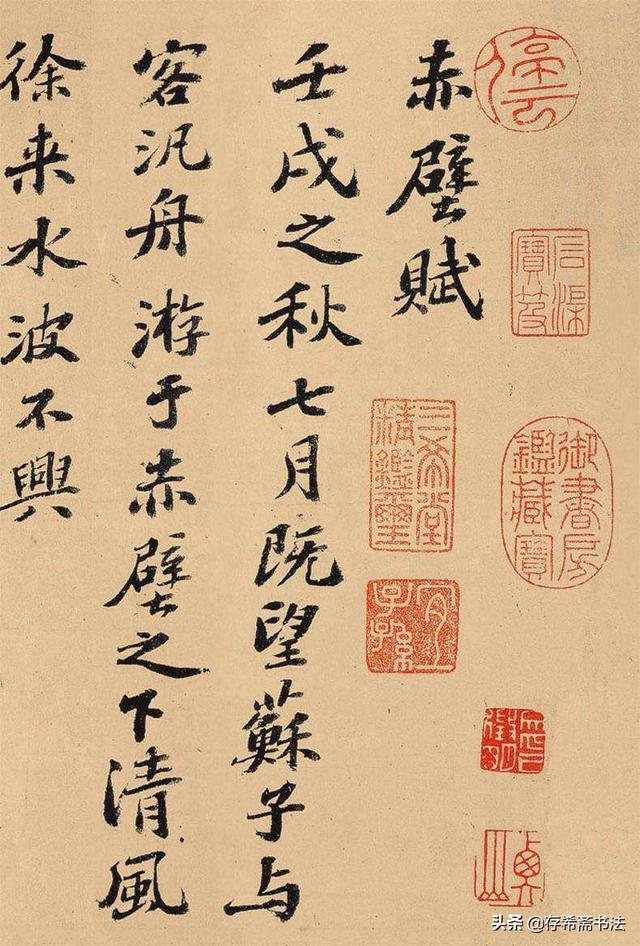 赤壁賦
壬戌之秋七月既望蘇子与
客汎舟游于赤壁之下清風
徐来水波不興
三希堂
精鑑璽
宜
子孫
御書房
鑑藏寶
头条 @存希斋书法